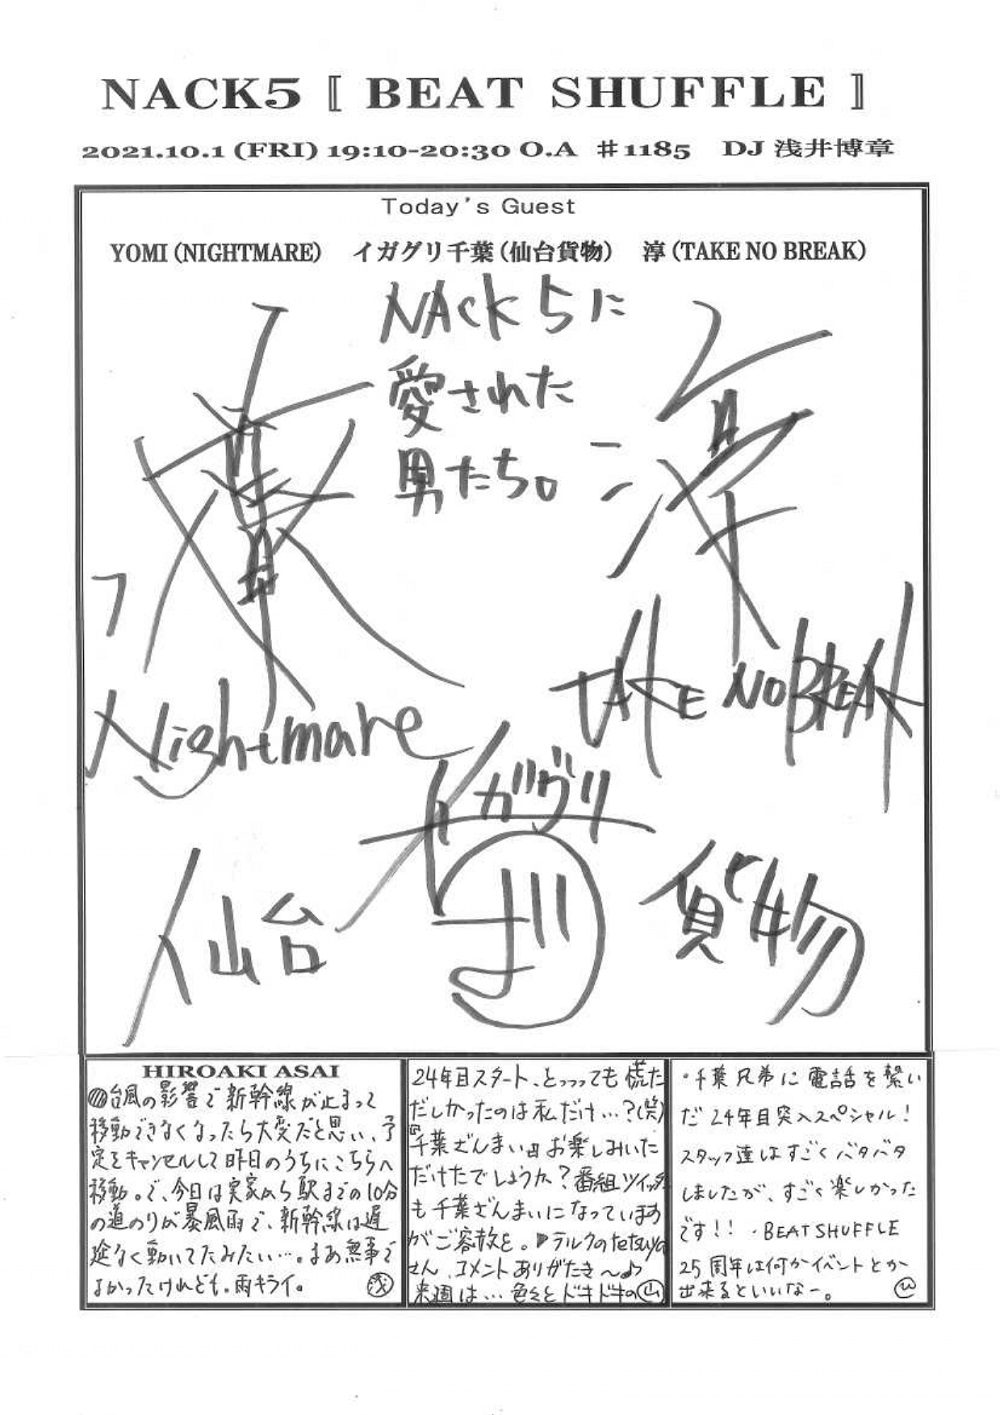 NACK5〚 BEAT SHUFFLE 〛
2021.10.1 (FRI) 19:10-20:30 O.A ＃1185 DJ 浅井博章
Today's Guest
YOMI (NIGHTMARE) イガグリ千葉 (仙台貨物) 淳 (TAKE NO BREAK)
NACK5に
愛された
男たち。
淳
Nightmare
TAKE NO BREAK
イガグリ
仙台
貨物
HIROAKI ASAI
台風の影響で新幹線が止まって
移動できなくなったら大変だと思い、予
定をキャンセルして昨日のうちにこちらへ
移動。で、今日は実家から駅までの10分
の道のりが暴風雨で、新幹線は遅
延なく動いてたみたい…。まあ無事で
よかったけれども。雨キライ。 浅
24年目スタート、とっっっても慌た
だしかったのは私だけ…?(笑)
『千葉ざんまい』お楽しみいた
だけたでしょうか？番組ツイッタ
も千葉ざんまいになっています
がご容赦を。テルクのtetsuya
さん、コメントありがたき〜♪
来週は…色々とドキドキの 山
・千葉兄弟に電話を繋い
だ24年目突入スペシャル！
スタッフ達はすごくバタバタ
しましたが、すごく楽しかった
です！！・BEAT SHUFFLE
25周年は何かイベントとか
出来るといいなー。 ひ